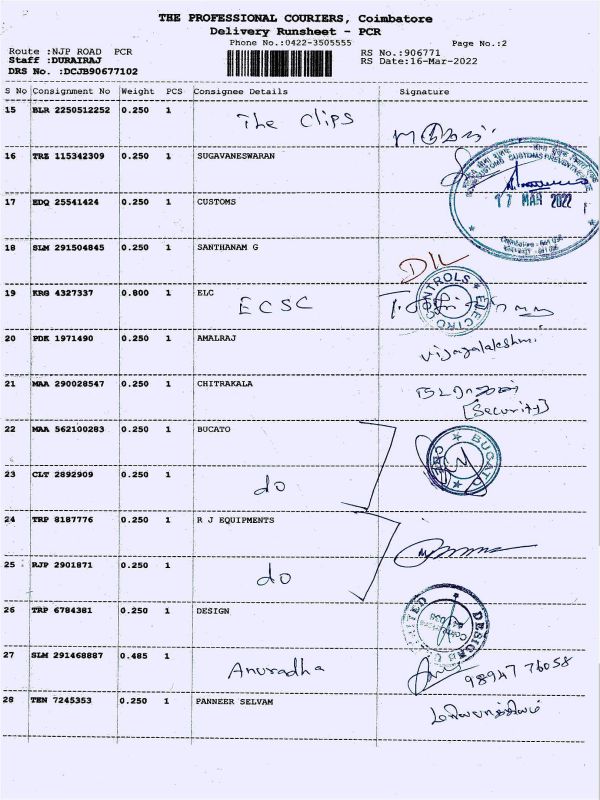 THE PROFESSIONAL COURIERS, Coimbatore
Delivery Runsheet - PCR
Phone No.:0422-3505555
Page No.:2
Route :NJP ROAD PCR
RS No.:906771
Staff :DURAIRAJ
RS Date:16-Mar-2022
DRS No. :DCJB90677102
S No Consignment No Weight PCS Consignee Details Signature
15 BLR 2250512252 0.250 1 The Clips
16 TRZ 115342309 0.250 1 SUGAVANESWARAN
17 EDQ 25541424 0.250 1 CUSTOMS
17 MAR 2022
18 SLM 291504845 0.250 1 SANTHANAM G
D/L
19 KRG 4327337 0.800 1 ELC
ECSC
CONTROLS ELECTRO
20 PDK 1971490 0.250 1 AMALRAJ
vijayalakshmi
21 MAA 290028547 0.250 1 CHITRAKALA
[Security]
22 MAA 562100283 0.250 1 BUCATO
BUCATO
23 CLT 2892909 0.250 1 do
24 TRP 8187776 0.250 1 R J EQUIPMENTS
25 RJP 2901871 0.250 1 do
26 TRP 6784381 0.250 1 DESIGN
27 SLM 291468887 0.485 1 Anuradha
98947 76058
28 TEN 7245353 0.250 1 PANNEER SELVAM